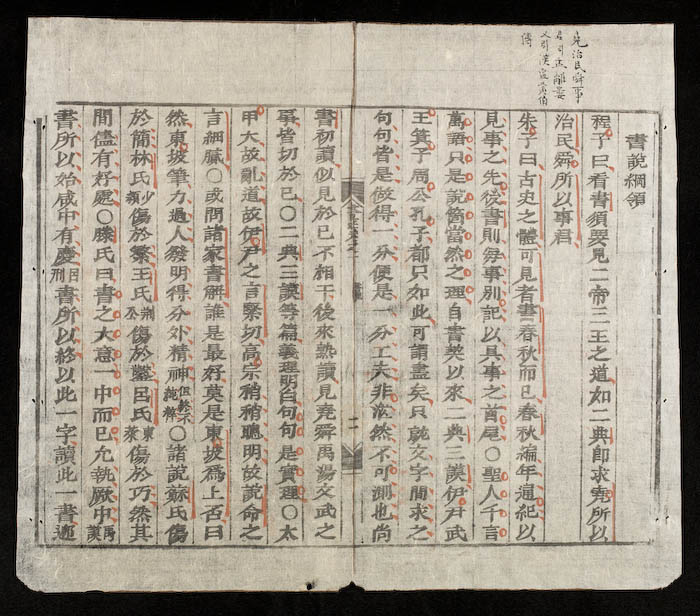 書說綱領
程子曰看書須要見二帝三王之道如二典即求堯所以
治民舜所以事君
朱子曰古史之體可見者書春秋而已春秋編年通紀以
見事之先後書則每事別記以具事之首尾〇聖人千言
萬語只是說箇當然之理自書契以來二典三謨伊尹武
王箕子周公孔子都只如此可謂盡矣只就文字間求之
句句皆是做得一分便是一分工夫非茫然不可測也尚
二
書初讀似見於己不相干後來熟讀見堯舜禹湯文武之
事皆切於己〇二典三謨等篇義理明白句句是實理〇太
甲大故亂道故伊尹之言緊切高宗稍稍聰明故說命之
言細膩〇或問諸家書解誰是最好莫是東坡爲上否曰
然東坡筆力過人發明得分外精神但終不〇諸說蘇氏傷
於簡林氏少穎傷於繁王氏荊公傷於鑿呂氏東萊傷於巧然其
間儘有好處〇滕氏曰書之大意一中而已允執厥中禹謨
書所以始咸中有慶呂刑書所以終以此一字讀此一書迎
治民舜事
又引漢
傳